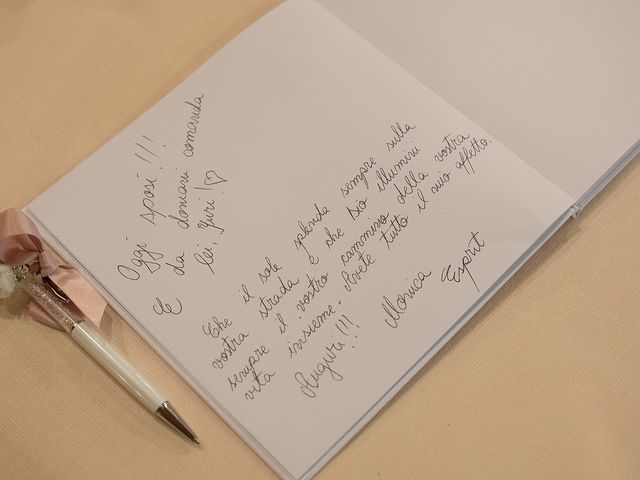 Oggi sposi!!!
E da domani comanda
lei, Yuri!♡
Che il sole splenda sempre sulla
vostra strada e che Dio illumini
sempre il vostro cammino della vostra
vita insieme. Avete tutto il mio affetto.
Auguri!!!
Monica
Esprit